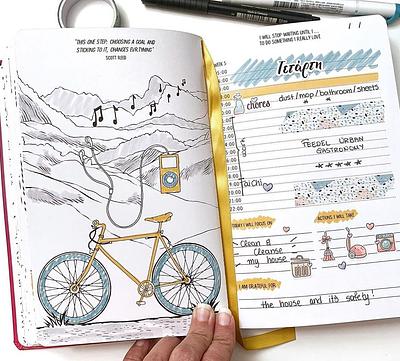 "THIS ONE STEP, CHOOSING A GOAL AND
STICKING TO IT, CHANGES EVRYTHING"
SCOTT REED
I WILL STOP WAITING UNTIL I ...
TO DO SOMETHING I REALLY LOVE
WEEK 5
Τετάρτη
chores
dust/mop/bathroom/sheets
TEEDEL URBAN
GASTRONOMY
TAiCHi
21:00
22:00
TODAY I WILL FOCUS ON
ACTIONS I WILL TAKE
Clean &
Cleanse
my house
I AM GRATEFUL FOR
the house and its safety